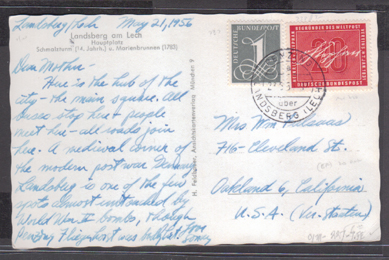 Landsberg/Lech May 21, 1956
Landsberg am Lech
Hauptplatz
Schmalzturm (14. Jahrh.) u. Marienbrunnen (1783)
Dear Mother -
Here is the hub of the
city - the main square. All
buses stop here & people
meet here - all roads join
here. A medieval corner of
the modern post war
Landsberg is one of the few
spots almost untouched by
World War II bombs, though
Penzing Fliegerhorst was
Love
München 9
DEUTSCHE BUNDESPOST
1
DEUTSCHE BUNDESPOST
über
LANDSBERG (LECH)
Mrs Wm
716 - Cleveland St.
Oakland 6, California
U.S.A.